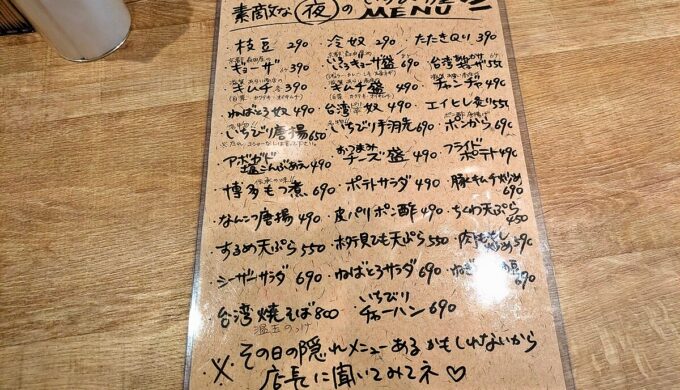 素敵な夜の いちびり屋
MENU
・枝豆 290 ・冷奴 290 ・たたきQり 390
・ギョーザ 390 ・いろいろギョーザ盛 690 ・台湾ギョーザ 550
・キムチ 390 ・キムチ盛 490 ・チャンヂャ 490
・ねばとろ奴 490 ・台湾奴 490 ・エイヒレ炙り 550
・いちびり唐揚 650 ・いちびり手羽先 690 ・ポンから 690
・アボガド塩こんぶあえ 490 ・おつまみチーズ盛 490 ・フライドポテト 490
・博多もつ煮 690 ・ポテトサラダ 490 ・豚キムチ炒め 690
・なんこつ唐揚 490 ・皮パリポン酢 490 ・ちくわ天ぷら 450
・するめ天ぷら 550 ・ホタテ貝ひも天ぷら 550 ・肉もやし炒め 590
・シーザーサラダ 690 ・ねばとろサラダ 690 ・ねぎ 690
・台湾焼そば 800 ・いちびりチャーハン 690
温玉のっけ
・※ その日の隠れメニューあるかもしれないから
店長に聞いてみてネ♡